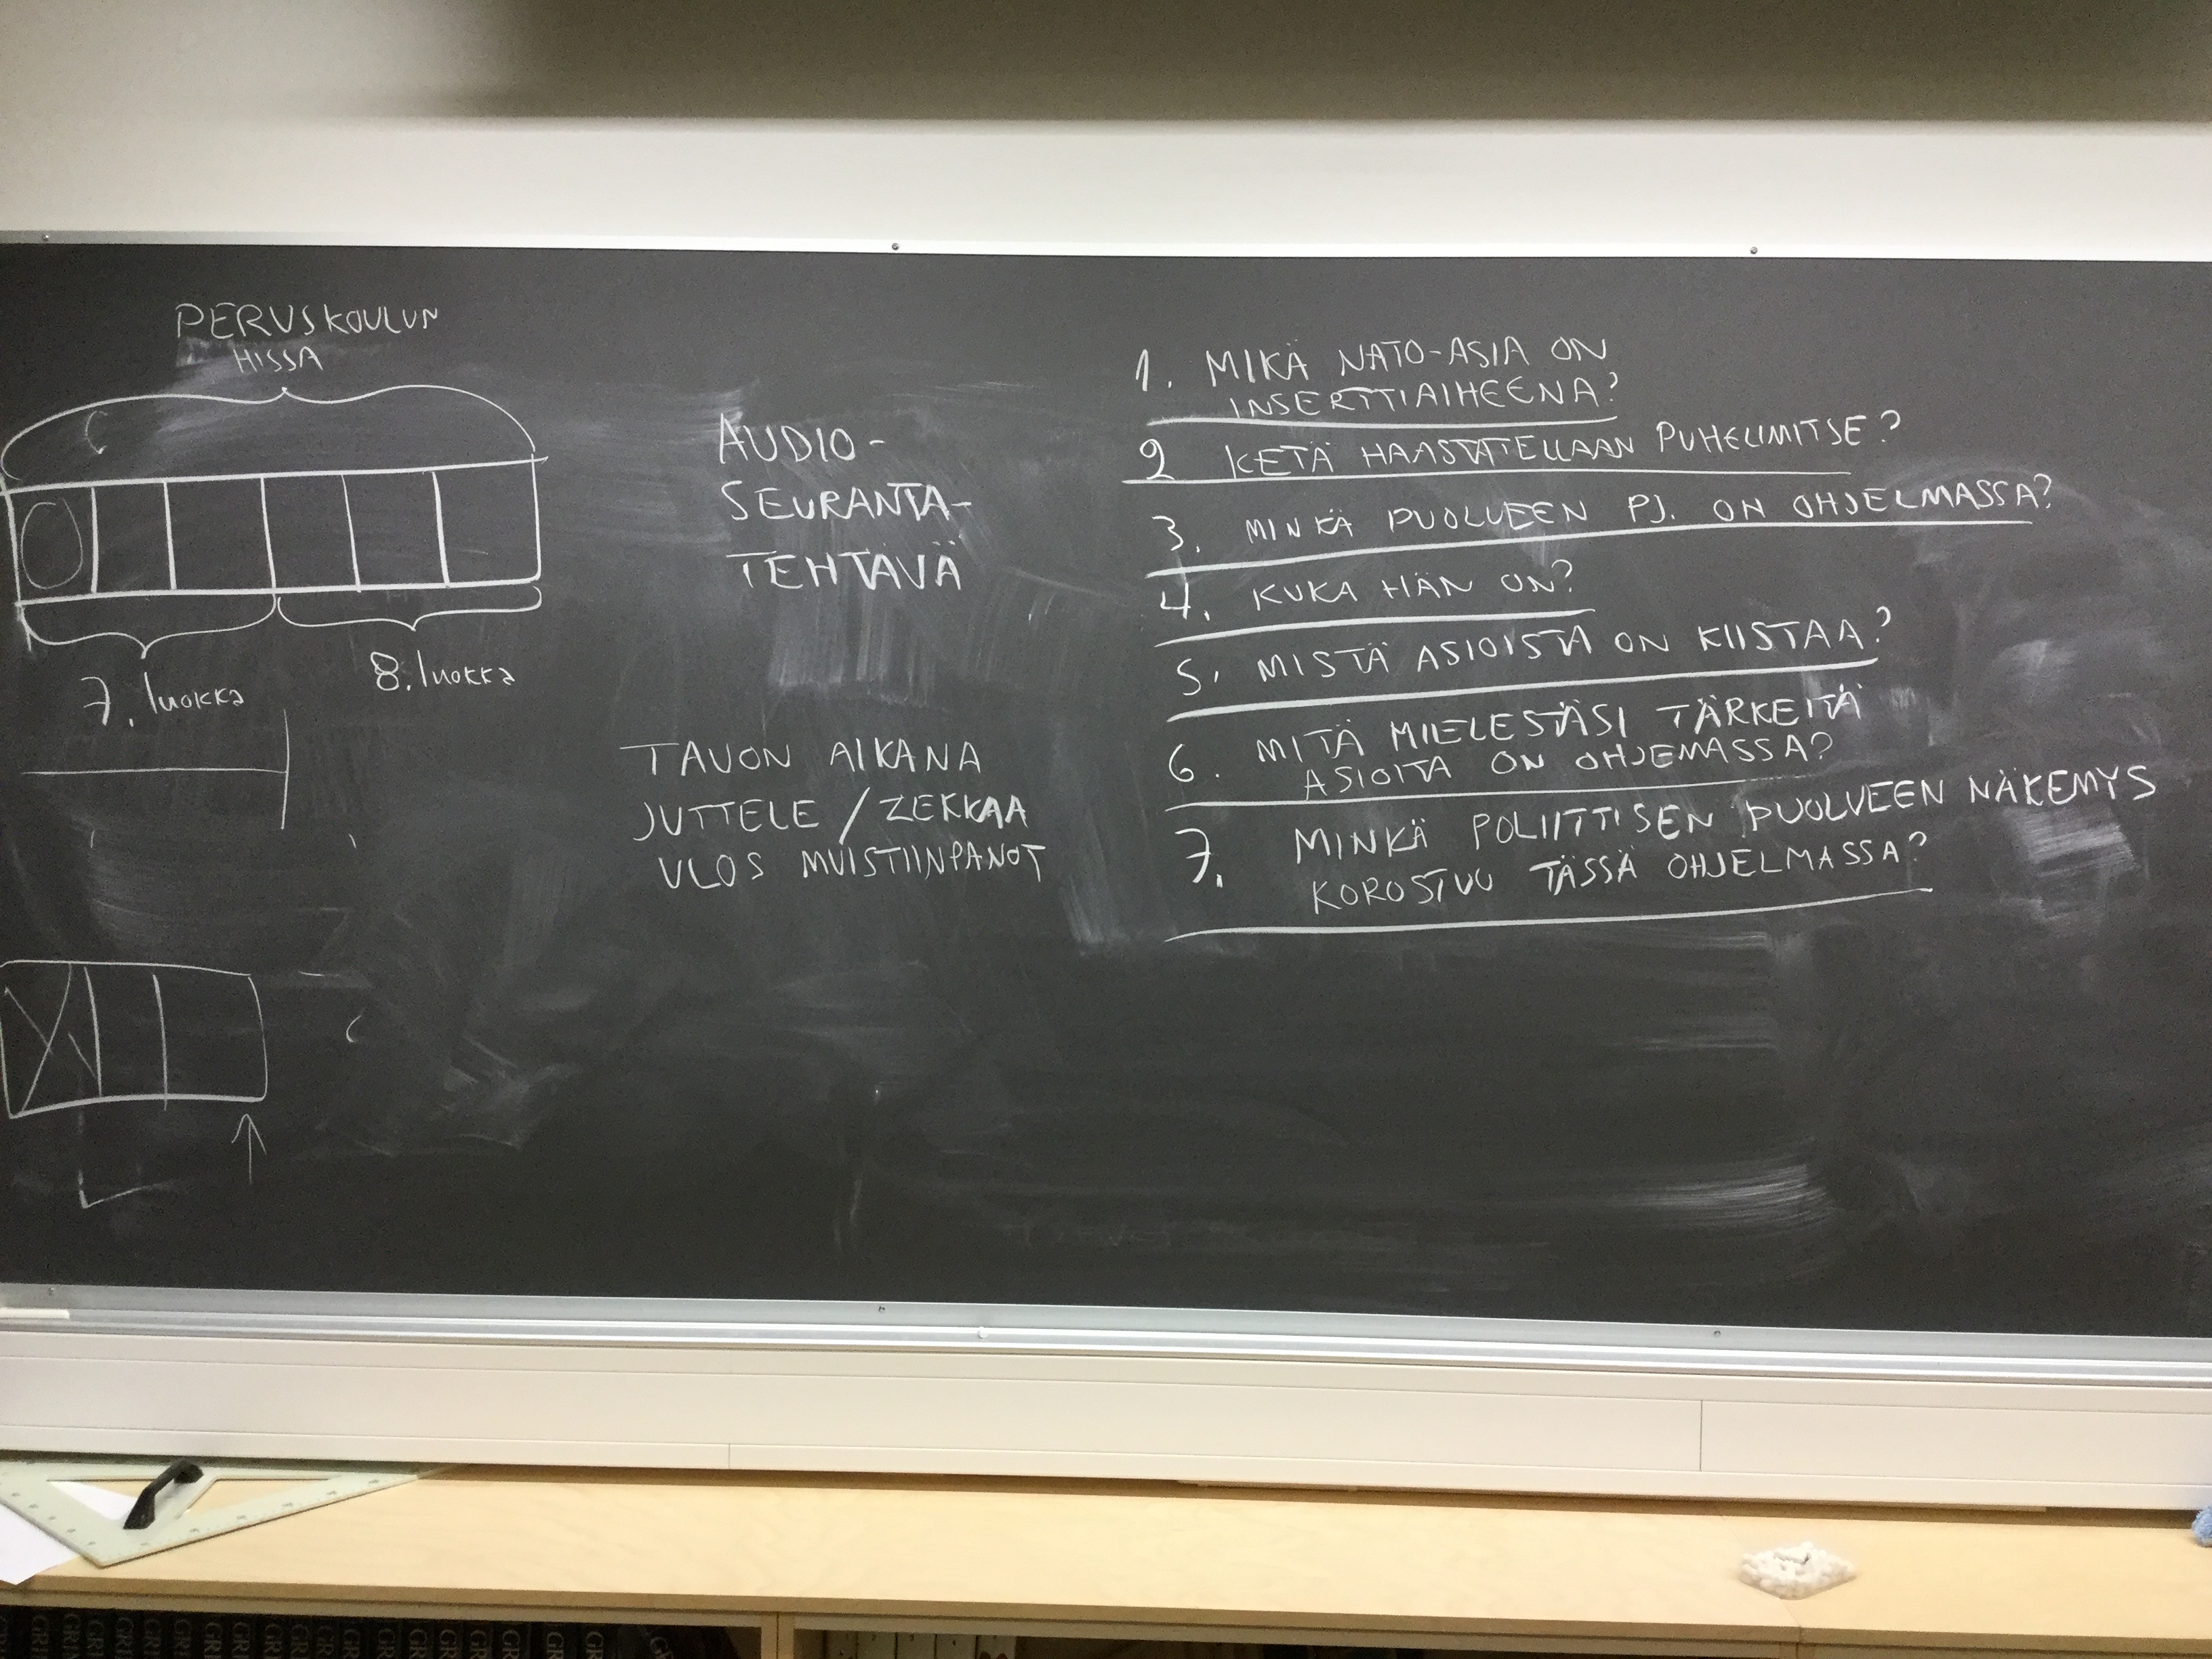 PERUSKOULUN
HISSA
7. luokka
8. luokka
AUDIO-
SEURANTA-
TEHTÄVÄ
TAUON AIKANA
JUTTELE / ZEKKAA
ULOS MUISTIINPANOT
1. MIKÄ NATO-ASIA ON
INSERTTIAIHEENA?
2 KETÄ HAASTATELLAAN PUHELIMITSE?
3. MINKÄ PUOLUEEN PJ. ON OHJELMASSA?
4. KUKA HÄN ON?
5. MISTÄ ASIOISTA ON KIISTAA?
6. MITÄ MIELESTÄSI TÄRKEITÄ
ASIOITA ON OHJEMASSA?
7. MINKÄ POLIITTISEN PUOLUEEN NÄKEMYS
KOROSTUU TÄSSÄ OHJELMASSA?